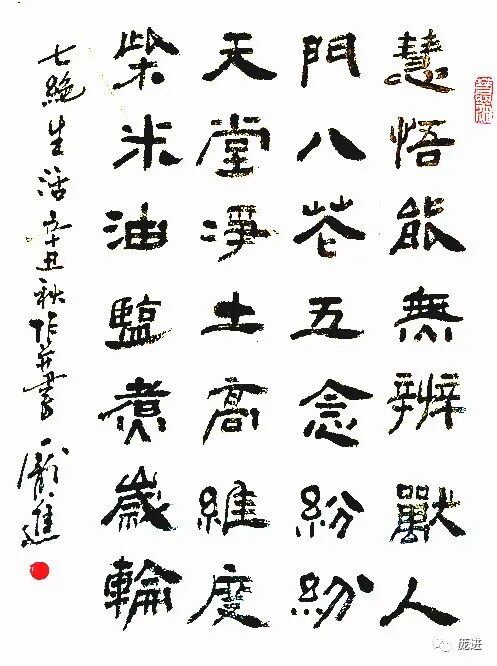 慧悟能無辨獸人
門八花五念紛紛
天堂淨土高維度
柴米油鹽煮歲輪
七絶生活辛丑秋作並書龐進
庞进